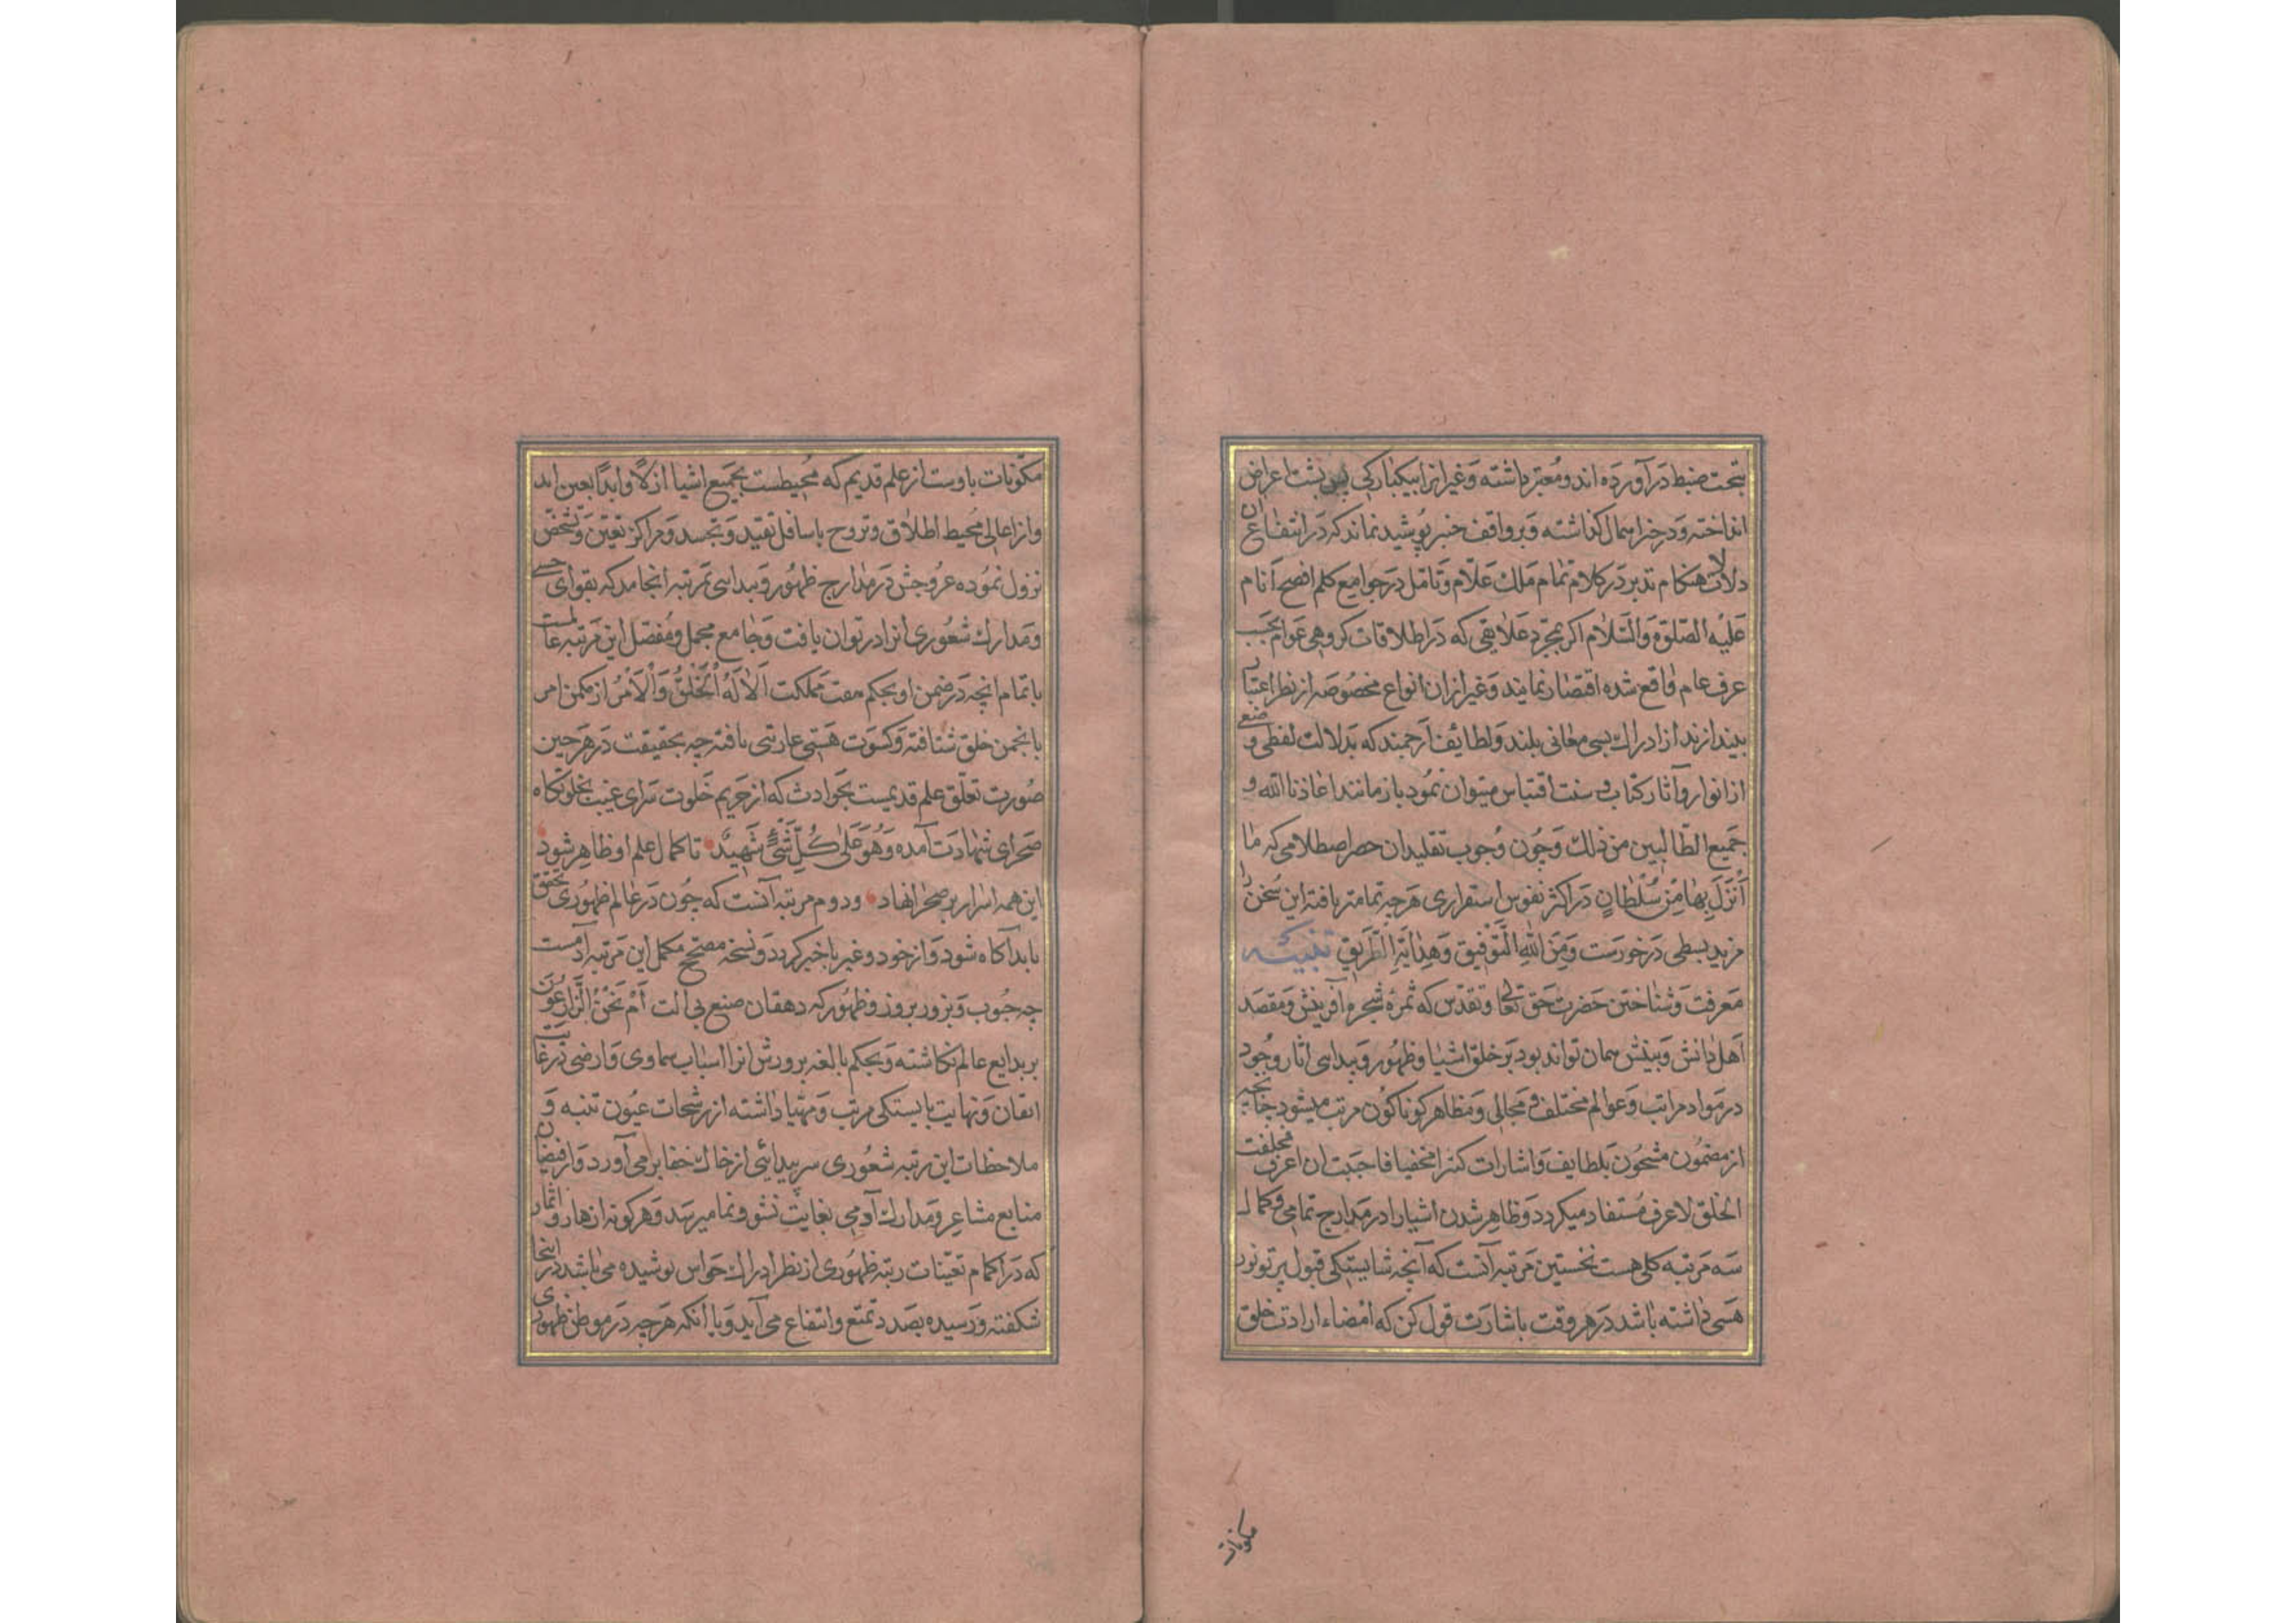 بتحت ضبط درآورده اند و معتبر داشته و غیر انرا بیکبارکی پس پشت اعراض
انداخته و در خیز اهمال کذاشته و بر واقف خبیر پوشیده نماند که در انتفاعان
دلالات هنکام تدبر در کلام تمام ملك علّام و تامل در جوامع کلم افصح انام
عَلَیْه الصّلوة والسّلام اکر بمجرد علایقی که در اطلاقات کروهی عوام بحسب
عرف عام واقع شده اقتصار نمایند و غیر از ان انواع مخصوصه از نظر اعتبار
بیندازند از ادراك بسی معانی بلند و لطایف ارجمند که بدلالت لفظی و ضعی
از انوار و آثار کتاب و سنت اقتباس میتوان نمود باز مانند اعاذنا الله و
جمیع الطّالبین من ذلك و چون وجوب تقلید ان حصر اصطلاحی که ما
اَنْزَلَ بِهَا مِنْ سُلْطَانٍ در اکثر نفوس استقراری هرچه تمامتر یافته این سخن را
مزید بسطی در خورست وَمِنَ اللهِ التَّوْفیق وَهِدَایَةِ الطَّرِیقِ تنبیه
معرفت و شناختن حضرت حق تعالی و تقدّس که ثمرۀ شجرۀ آفرینش و مقصد
اهل دانش و بینش همان تواند بود بر خلق اشیا و ظهور و پیدایی اثار وجود
در مواد مراتب و عوالم مختلف و مجالی و مظاهر کوناکون مرتب میشود چنانچه
از مضمون مشحون بلطایف و اشارات کنزا مخفیا فاحببت ان اعرف فخلقت
الخلق لاعرف مستفاد میکردد و ظاهر شدن اشیا را در مدارج تمامی و کمال
سه مرتبه کلی هست نخستین مرتبه آنست که آنچه شایستکی قبول پرتو نور
هستی داشته باشد در هر وقت باشارت قول کن که امضاء ارادت خلق
مکونات
مکونات باوست از علم قدیم که محیطست بجمیع اشیا ازلًا و ابدًا بعین اید
و از اعالی محیط اطلاق و تروح باسافل تقید و تجسد و مراکز تعین و تشخص
نزول نموده عروجش در مدارج ظهور و پیدایی بمرتبه انجامد که بقوای حسی
و مدارك شعوری انرا در توان یافت و جامع مجمل و مفصل این مرتبه عالمست
با تمام انچه در ضمن او بحکم مملکت اَلَا لَهُ الْخَلْقُ وَالْاَمْرُ از مکمن امر
بانجمن خلق شتافته و کسوت هستی عاریتی یافته چه بحقیقت در هر حین
صورت تعلّق علم قدیمست بحوادث که از حریم خلوت سرای غیب بخلوتکاه
صحرای شهادت آمده وَهُوَ عَلٰی کُلِّ شَیْءٍ شَهِیدٌ تا کمال علم او ظاهر شود
این همه اسرار بر صحرا نهاد و دوم مرتبه آنست که چون در عالم ظهوری تحقق
یابد آکاه شود و از خود و غیر باخبر کردد و نسخه مصحح مکمل این مرتبه آدمست
چه حبوب و بزور بروز و ظهور که دهقان صنع بی الت اَمْ نَحْنُ الزَّارِعُونَ
بر بدایع عالم کاشته و بحکم بالغه پرورش انرا اسباب سماوی و ارضی در غایت
اتقان و نهایت بایستکی مرتب و مهیا داشته از رشحات عیون تنبه و
ملاحظات این رتبه شعوری سر پیدائی از خاك خفا برمی آورد و از فیضان
منابع مشاعر و مدارك آدمی بغایت نشو و نما میرسد و هرکونه ازهار و اثمار
که در اکمام تعینات رتبه ظهوری از نظر ادراك حواس پوشیده می باشد در اینجا
شکفته و رسیده بصدد تمتع و انتفاع می آید و با انکه هرچه در موطن ظهوری